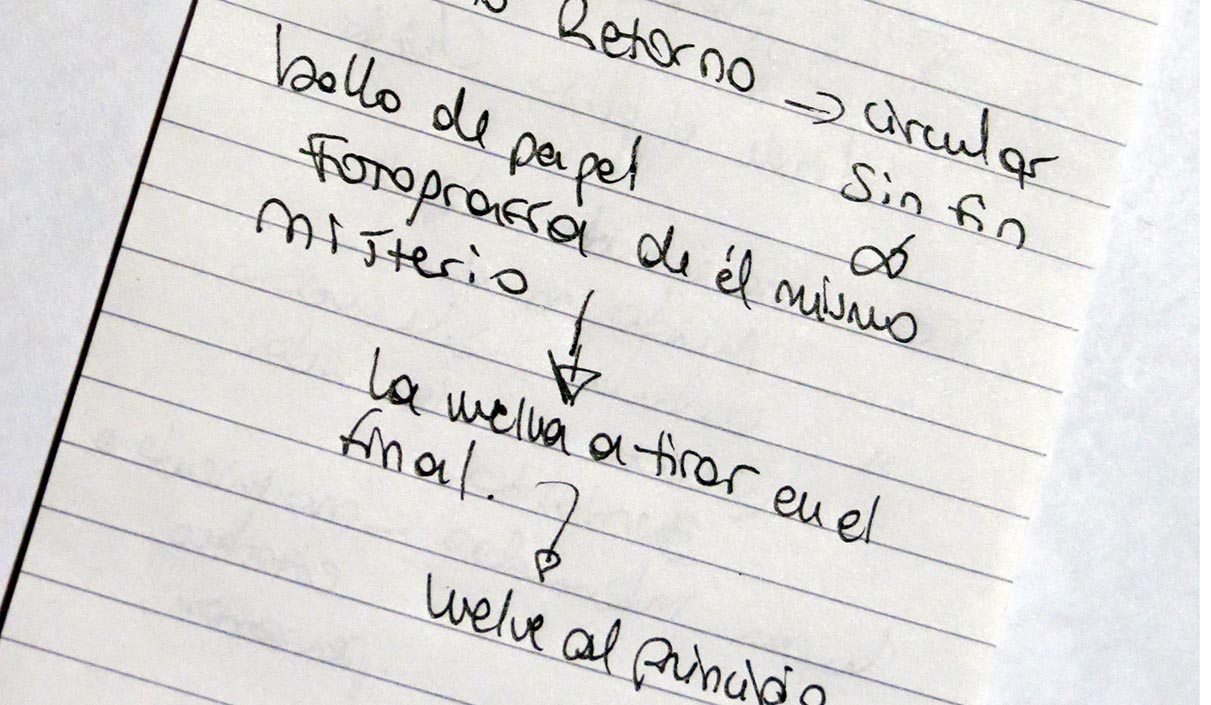 Retorno → circular
sin fin
∞
bollo de papel
Fotografía de él mismo
misterio
↓
la vuelva a tirar en el
final.
vuelve al principio